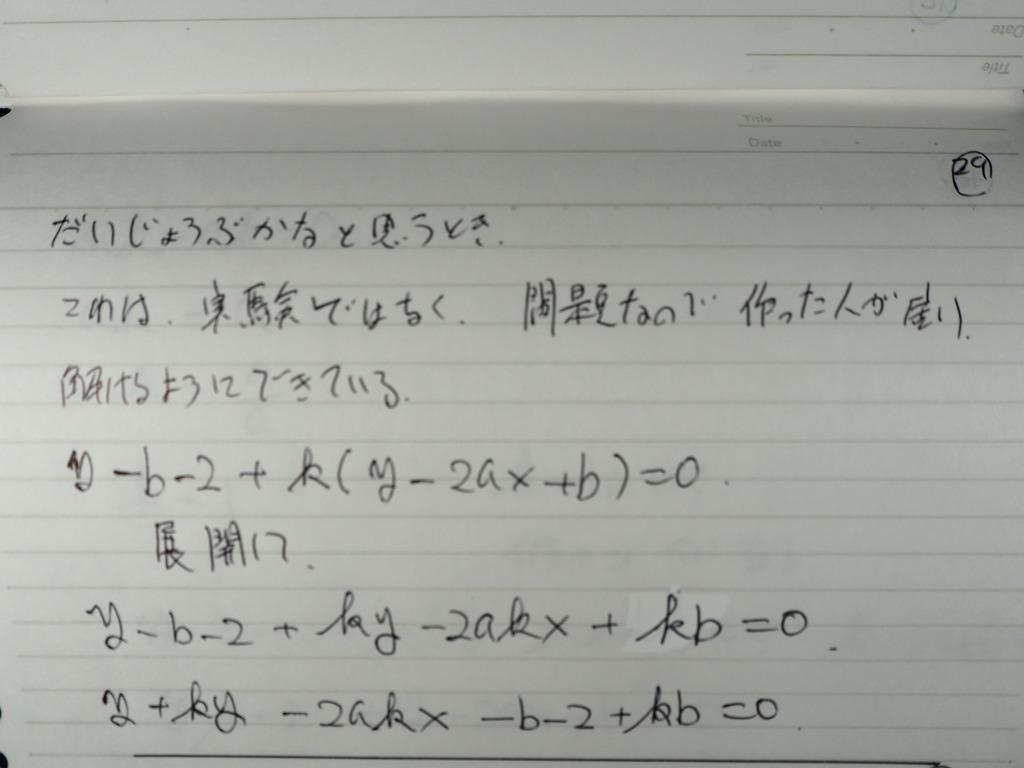 Date
Title
Title
Date
29
だいじょうぶかなと思うとき.
これは、実験ではなく、問題なので 作った人が居り、
解けるようにできている.
y-b-2+k(y-2ax+b)=0.
展開して、
y-b-2+ky-2akx+kb=0.
y+ky-2akx-b-2+kb=0